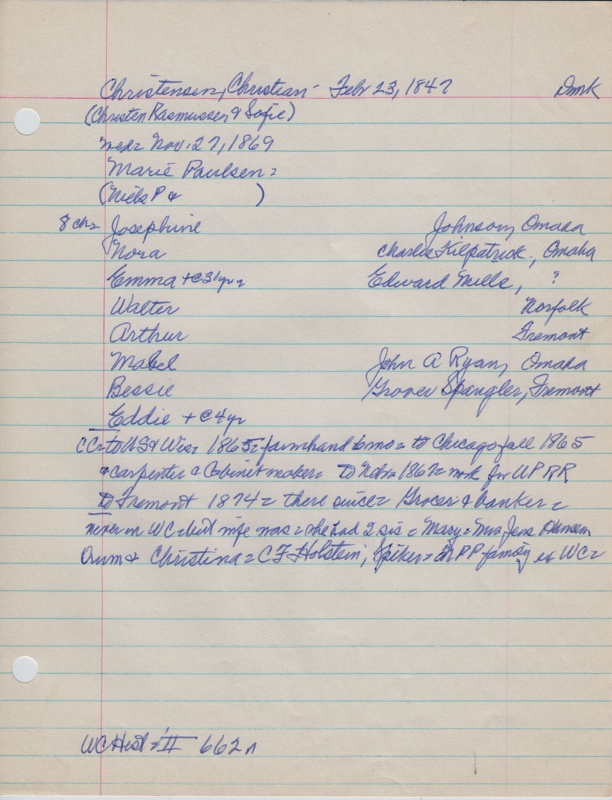 Christensen, Christian - Feb 23, 1847 Dmk
(Christen Rasmussen & Sofie)
med= Nov. 27, 1869
Marie Paulsen =
(Niels P & )
8 ch= Josephine Johnson, Omaha
Nora Charles Kilpatrick, Omaha
Emma + c 31 yr= Edward Mills, ?
Walter Norfolk
Arthur Fremont
Mabel John A Ryan, Omaha
Bessie Grover Spangler, Fremont
Eddie + c 4 yr
CC= to US & Wis= 1865= farmhand 6 mo= to Chicago fall 1865
& carpenter & Cabinet maker= to Neb= 1867= work for UP RR
to Fremont 1874= there since= Grocer & banker=
never in WC= but wife was= she had 2 sis= Mary= Mrs Jens Hansen
Orum & Christina= C F Holstein, Spiker= PP family in WC=
WC Hist= II 662 n